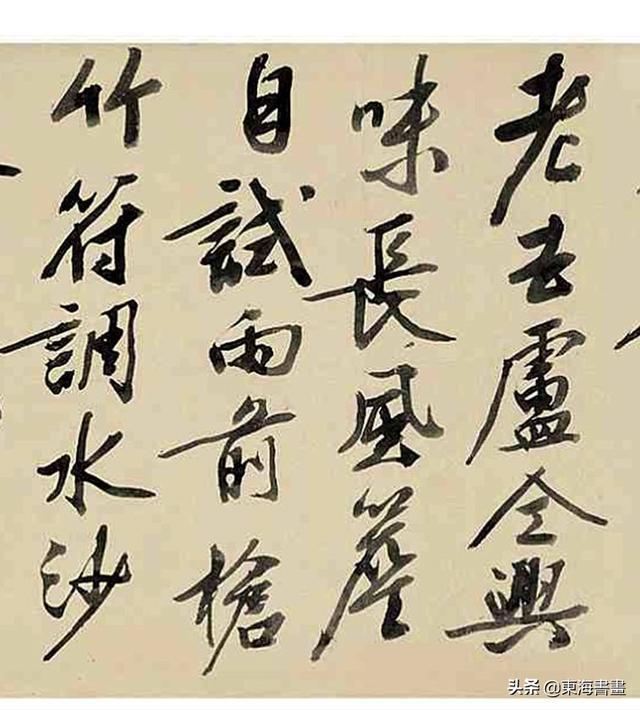 老去盧仝興
味長風簷
自試雨前槍
竹符調水沙
头条 @東海書畫